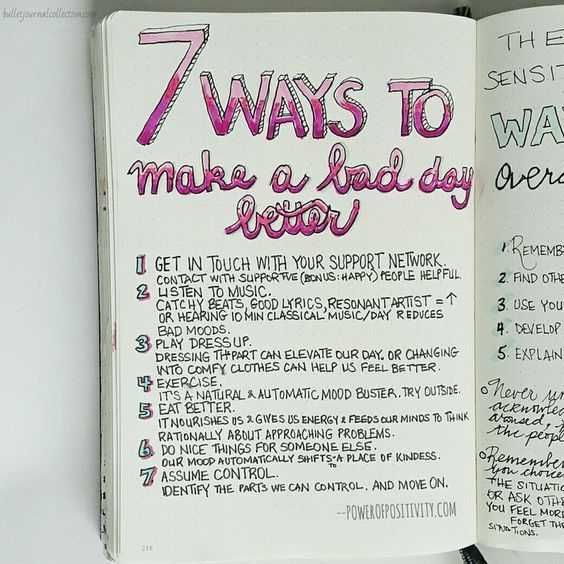 bulletjournalcollection.com
7 WAYS TO
make a bad day
better
1 GET IN TOUCH WITH YOUR SUPPORT NETWORK.
CONTACT WITH SUPPORTIVE (BONUS: HAPPY) PEOPLE HELPFUL
2 LISTEN TO MUSIC.
CATCHY BEATS, GOOD LYRICS, RESONANT ARTIST = ↑
OR HEARING 10 MIN CLASSICAL MUSIC/DAY REDUCES
BAD MOODS.
3 PLAY DRESS UP.
DRESSING TH PART CAN ELEVATE OUR DAY. OR CHANGING
INTO COMFY CLOTHES CAN HELP US FEEL BETTER.
4 EXERCISE.
IT'S A NATURAL & AUTOMATIC MOOD BUSTER. TRY OUTSIDE.
5 EAT BETTER.
IT NOURISHES US & GIVES US ENERGY & FEEDS OUR MINDS TO THINK
RATIONALLY ABOUT APPROACHING PROBLEMS.
6 DO NICE THINGS FOR SOMEONE ELSE.
OUR MOOD AUTOMATICALLY SHIFTS TO A PLACE OF KINDESS.
7 ASSUME CONTROL.
IDENTIFY THE PARTS WE CAN CONTROL. AND MOVE ON.
--POWEROFPOSITIVITY.COM
THE
SENSIT
WA
over
1 REMEMB
2. FIND OTHE
3 USE YOU
4. DEVELOP
5. EXPLAIN
Never un
acknowled
around,
the peopl
Remember
you choice
THE SITUATIO
OR ASK OTHE
YOU FEEL MOR
FORGET THE
SITUATIONS.